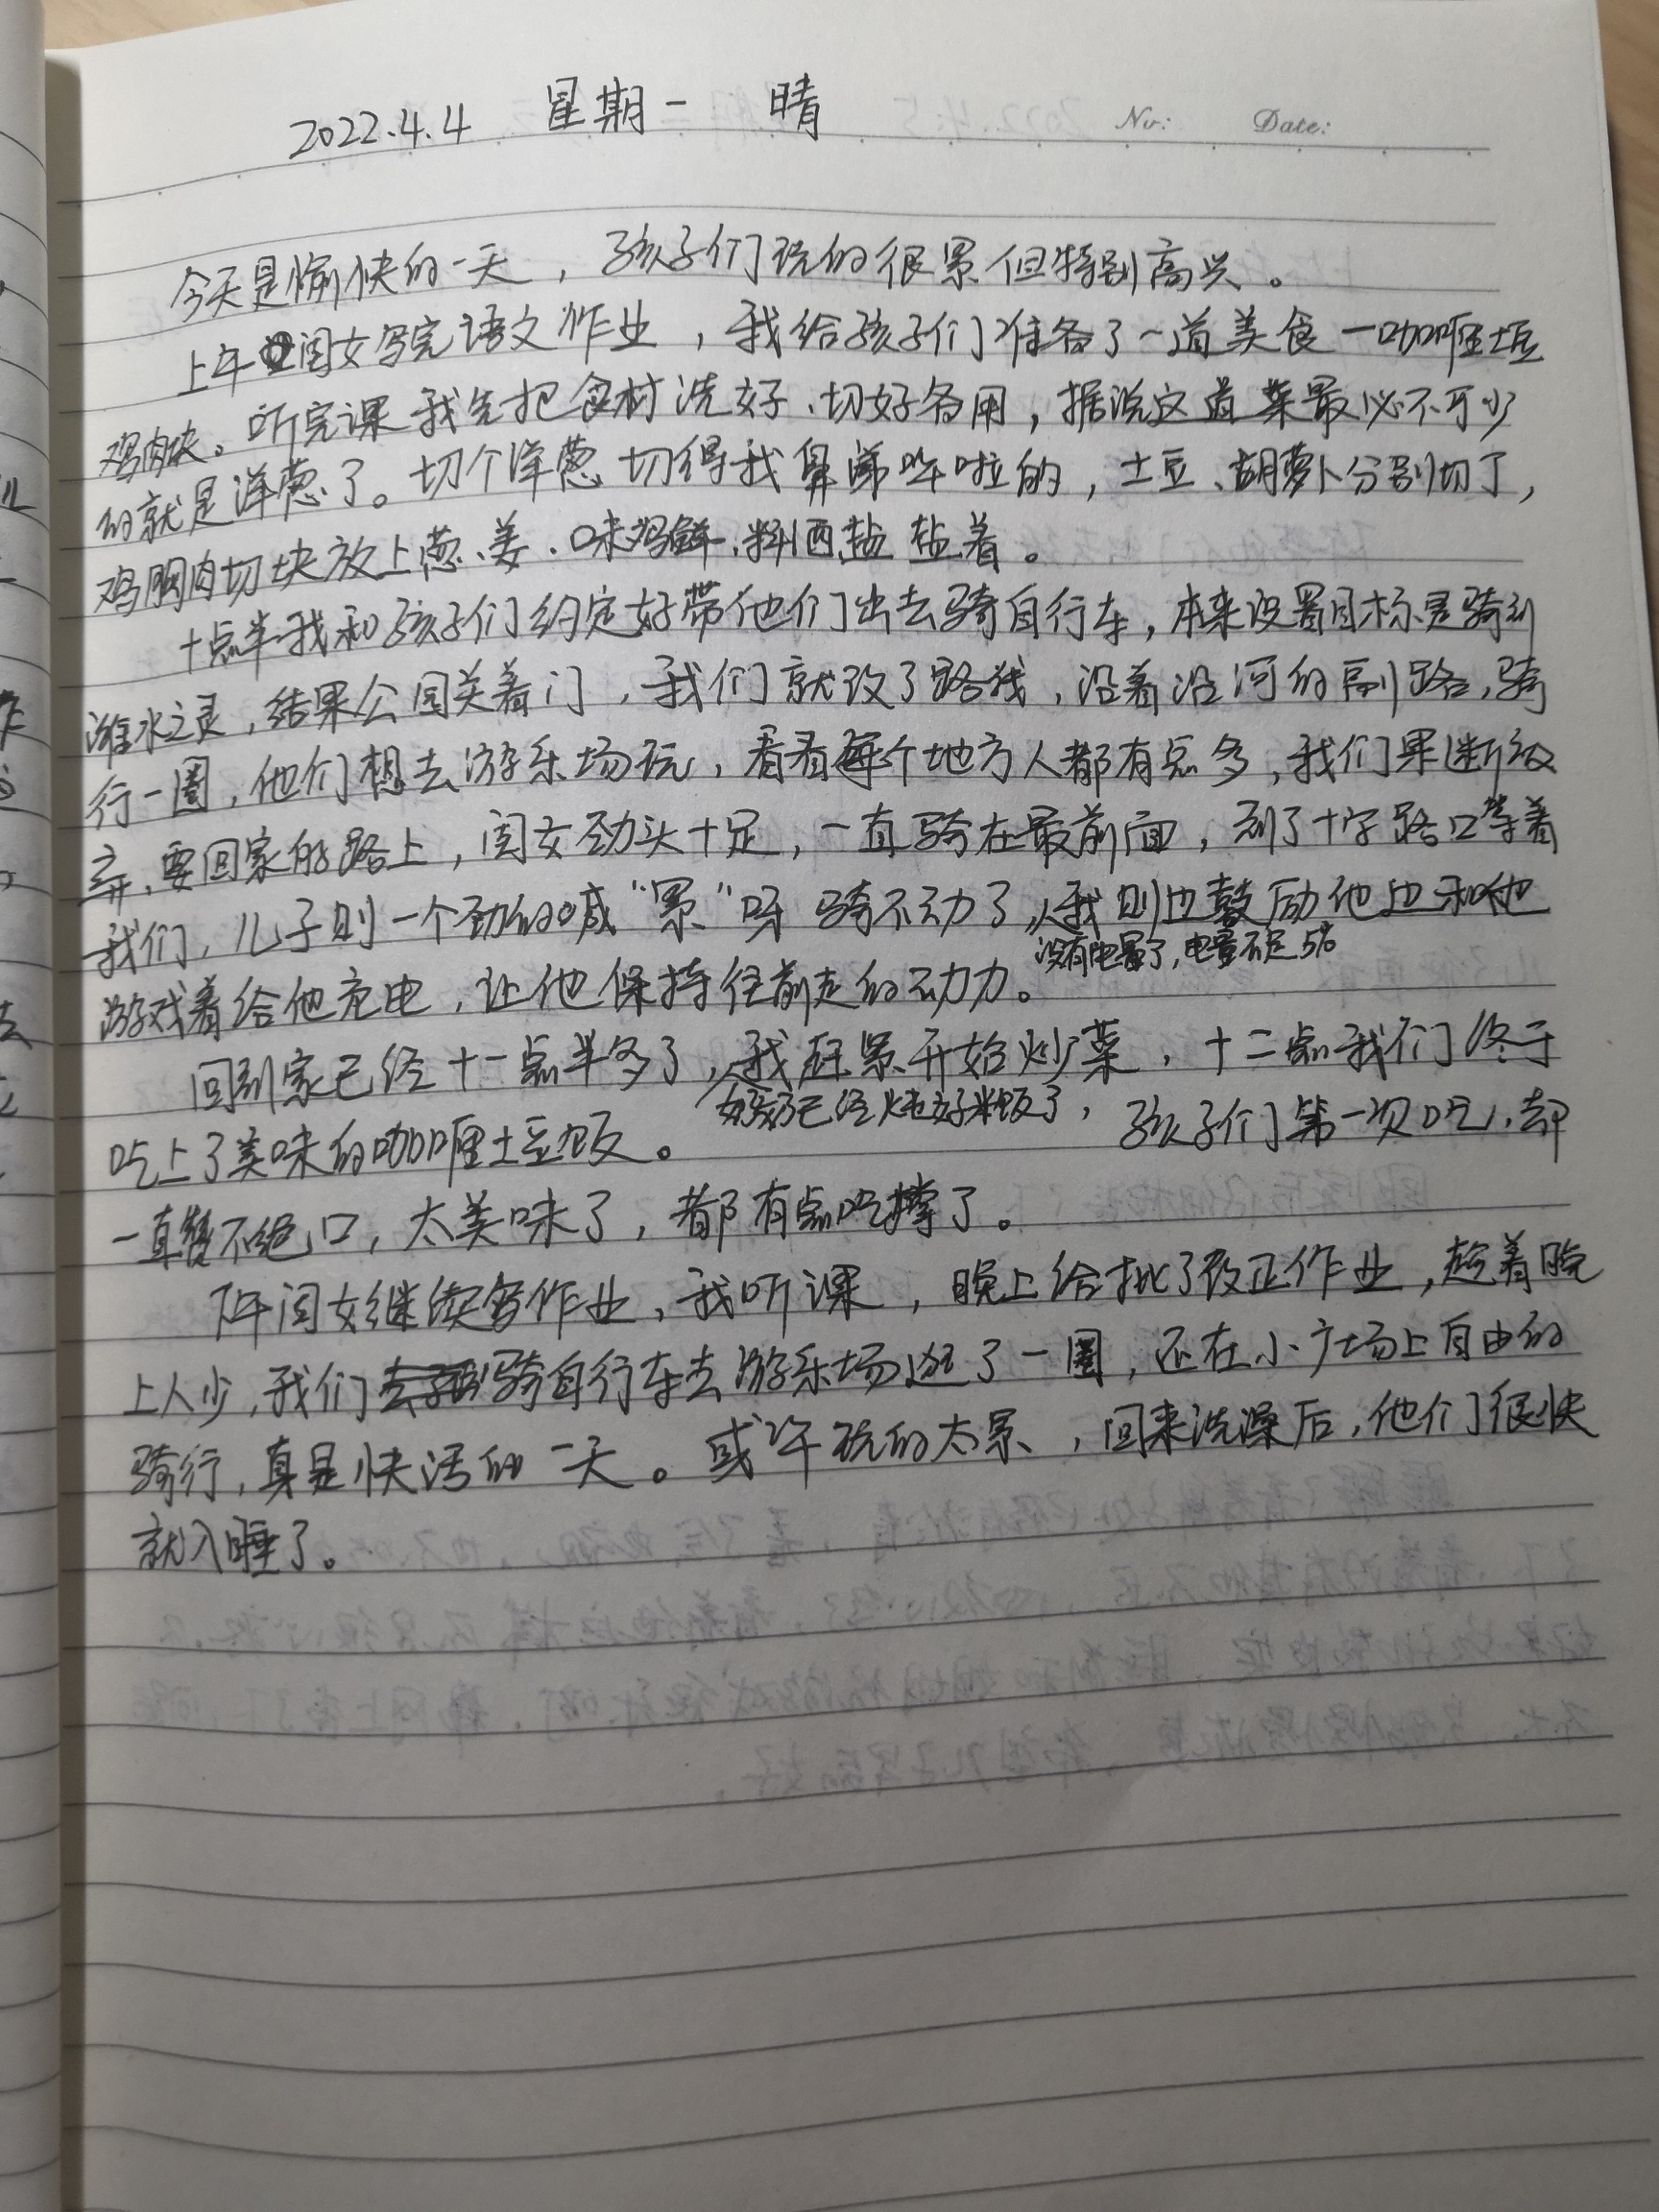 2022.4.4 星期一 晴
No: Date:
今天是愉快的一天，孩子们玩的很累但特别高兴。
上午闺女写完语文作业，我给孩子们准备了一道美食一咖喱土豆
鸡肉块。听完课我先把食材洗好、切好备用，据说这道菜最必不可少
的就是洋葱了。切个洋葱切得我鼻涕哗啦的，土豆、胡萝卜分别切了，
鸡胸肉切块放上葱、姜、味鸡鲜、料酒、盐 盐着。
十点半我和孩子们约定好带他们出去骑自行车，本来设置目标是骑到
潍水之灵，结果公园关着门，我们就改了路线，沿着沿河的副路，骑
行一圈，他们想去游乐场玩，看看每个地方人都有点多，我们果断放
弃，要回家的路上，闺女劲头十足，一直骑在最前面，到了十字路口等着
我们，儿子则一个劲的喊“累”呀 骑不动了，我则边鼓励他边和他
没有电量了，电量不足5%
游戏着给他充电，让他保持往前走的动力。
回到家已经十一点半多了，我赶紧开始炒菜，十二点我们终于
奶奶已经炖好米饭了，
吃上了美味的咖喱土豆饭。孩子们第一次吃，却
一直赞不绝口，太美味了，都有点吃撑了。
下午闺女继续写作业，我听课，晚上给批了改正作业，趁着晚
上人少，我们骑自行车去游乐场逛了一圈，还在小广场上自由的
骑行，真是快活的一天。或许玩的太累，回来洗澡后，他们很快
就入睡了。